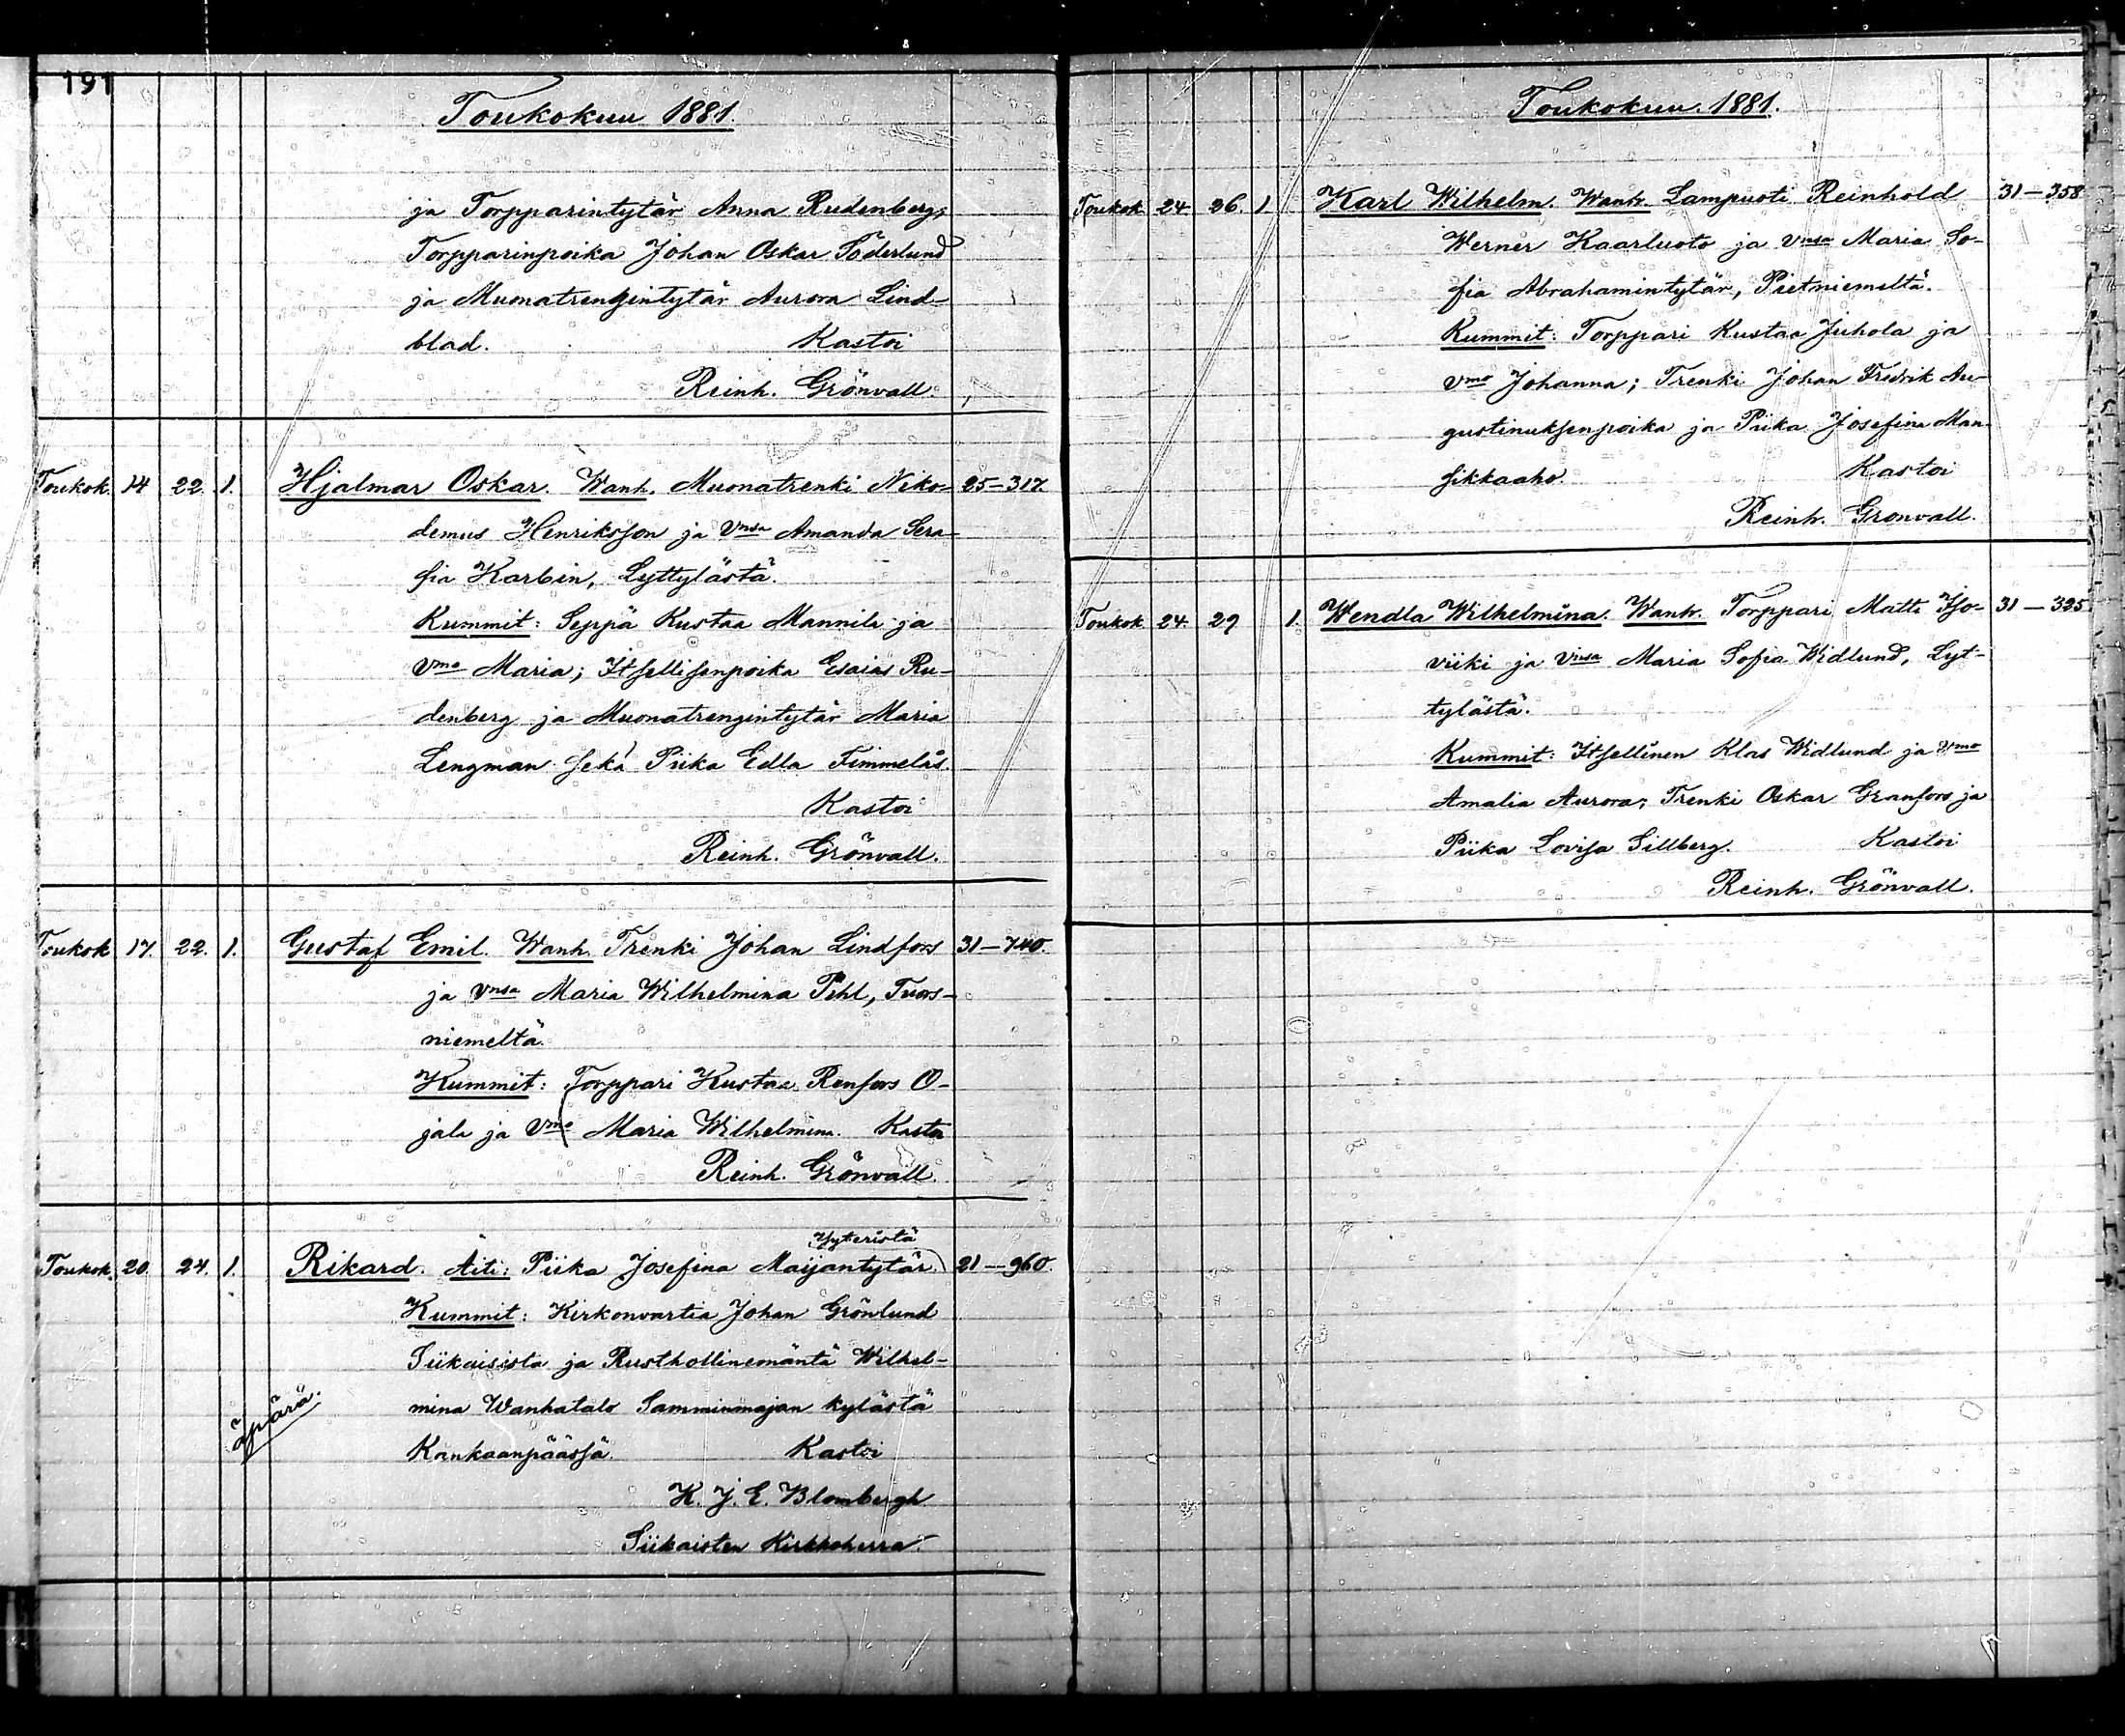 191
Toukokuu 1881.
ja Torpparintytär Anna Rudenberg;
Torpparinpoika Johan Oskar Söderlund
ja Muonatrengintytär Aurora Lind-
blad. Kastoi
Reinh. Grönvall.
Toukok. 14 22. 1. Hjalmar Oskar. Wanh. Muonatrenki Niko- 25–317.
demus Henriksson ja Vnsa Amanda Sera-
fia Karbin, Lyttylästä.
Kummit: Seppä Kustaa Mannila ja
Vmo Maria; Itsellisenpoika Esaias Ru-
denberg ja Muonatrengintytär Maria
Lengman sekä Piika Edla Fimmelas.
Kastoi
Reinh. Grönvall.
Toukok 17. 22. 1. Gustaf Emil. Wanh. Trenki Johan Lindfors 31–740.
ja Vnsa Maria Wilhelmina Pihl, Tuors-
niemeltä.
Kummit: Torppari Kustaa Renfors O-
jala ja Vmo Maria Wilhelmina. Kastoi
Reinh. Grönvall.
Yyteristä
Toukok. 20. 24. 1. Rikard. Äiti: Piika Josefina Maijantytär. 21–960.
Kummit: Kirkonvartia Johan Grönlund
Siikaisista ja Rusthollinemäntä Wilhel-
mina Wanhatalo Samminmajan kylästä
äpärä.
Kankaanpäässä. Kastoi
K. J. E. Blombergh
Siikaisten Kirkkoherra.
Toukokuu. 1881.
Toukok 24 26. 1. Karl Wilhelm. Wanh. Lampuoti Reinhold 31–358
Werner Kaarluoto ja Vnsa Maria So-
fia Abrahamintytär, Pietniemeltä.
Kummit: Torppari Kustaa Juhola ja
Vmo Johanna; Trenki Johan Fredrik Au-
gustinuksenpoika ja Piika Josefina Man-
sikkaaho. Kastoi
Reinh. Gronvall.
Toukok 24. 29 1. Wendla Wilhelmina. Wanh. Torppari Matti Iso- 31–325
viiki ja Vnsa Maria Sofia Widlund, Lyt-
tylästä.
Kummit: Itsellinen Klas Widlund ja Vmo
Amalia Aurora; Trenki Oskar Granfors ja
Piika Lovisa Sillberg. Kastoi
Reinh. Grönvall.